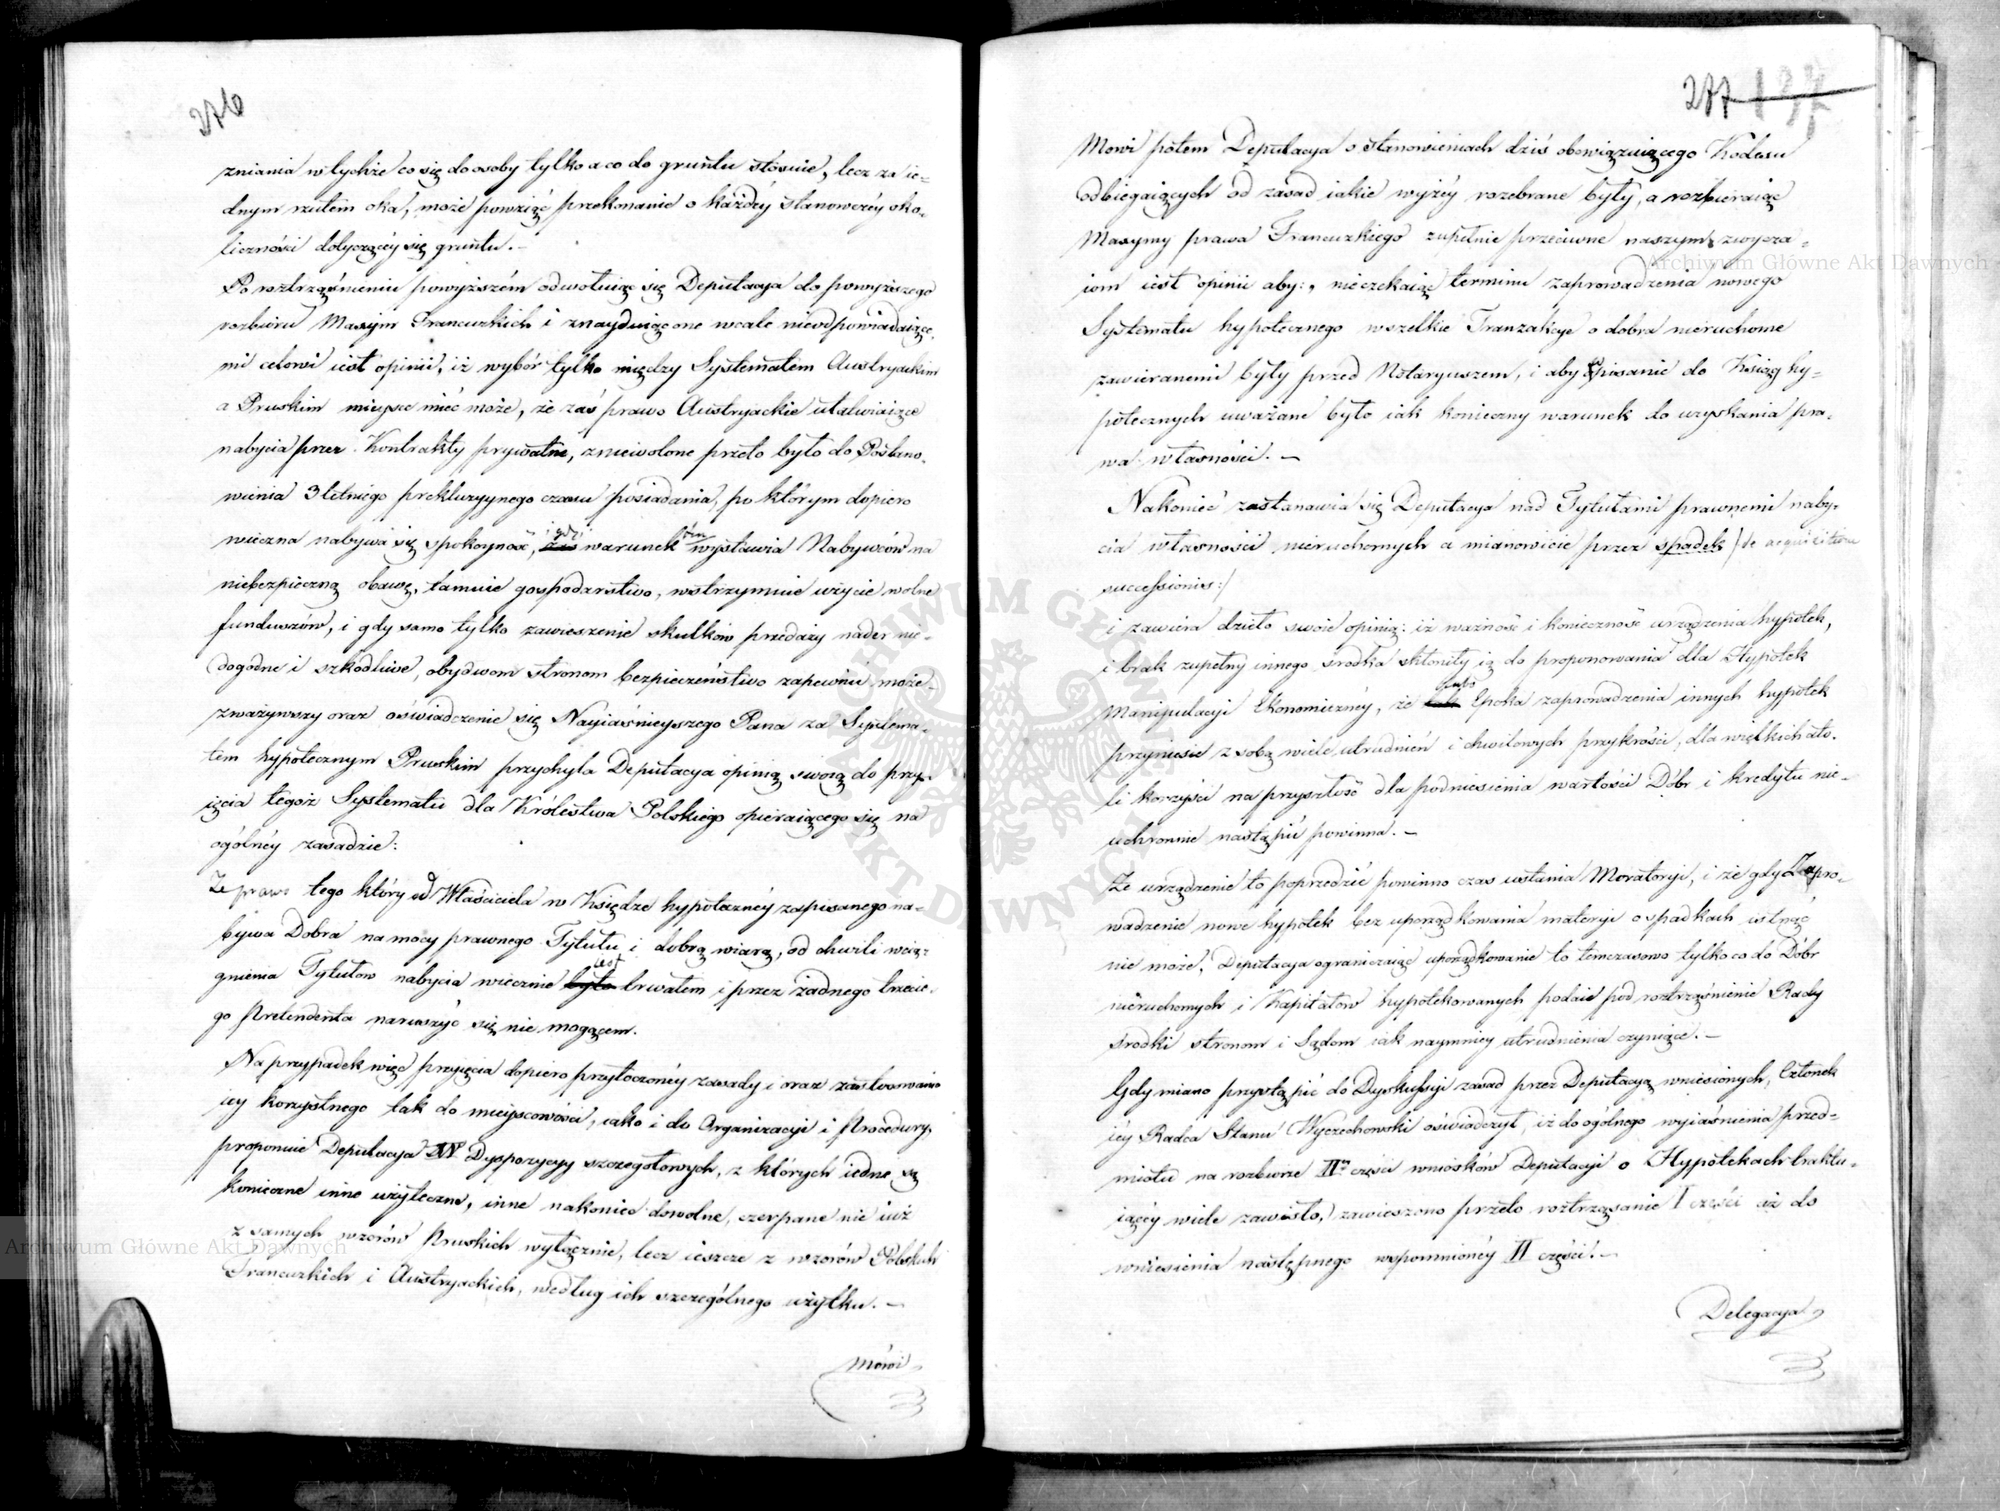 276
zniania w tychże co się do osoby tylko a co do gruntu stosuie, lecz za ie-
dnym rzutem oka, może powziąć przekonanie o każdéy stanowczéy oko-
liczności dotyczącéy się gruntu. –
Po roztrząśnieniu powyższém odwołuiąc się Deputacja do powyższego
rozbioru Maxym Francuzkich i znayduiąc one wcale nieodpowiadaiące-
mi celowi iest opinii, iż wybór tylko między Systematem Austryackim
a Pruskim mieysce mieć może, że zaś prawo Austryackie ułatwiaiące
nabycia przez Kontrakty prywatne, zniewolone przeto było do Postano-
wienia 3letniego prekluzyynego czasu posiadania, po którym dopiero
wieczna nabywa się spokoyność, i gdy warunek ten wystawia Nabywców na
niebezpieczną obawę, tamuie gospodarstwo, wstrzymuie użycie wolne
funduszów, i gdy samo tylko zawieszenie skutków przedaży nader nie-
dogodne i szkodliwe, obydwom stronom bezpieczeństwo zapewnić może –
zważywszy oraz oświadczenie się Nayiaśnieyszego Pana za Systema-
tem hypotecznym Pruskim przychyla Deputacya opinią swoią do przy-
ięcia tegoż Systematu dla Królestwa Polskiego opieraiącego się na
ogólnéy zasadzie:
Że prawo tego który od Właściciela w Księdze hypotecznéy zapisanego na-
bywa Dobra na mocy prawnego Tytułu i dobrą wiarą, od chwili wcią-
gnienia Tytułów nabycia wiecznie iest trwałem i przez żadnego trzecie-
go Pretendenta naruszyć się nie mogącem.
Na przypadek więc przyięcia dopiero przytoczonéy zasady i oraz zastosowania
iéy korzystnego tak do mieyscowości, iako i do Organizacyi i Procedury,
proponuie Deputacya XV Dyspozycyy szczegółowych, z których iedne są
konieczne inne użyteczne, inne nakoniec dowolne, czerpane nie iuż
z samych wzorów Pruskich wyłącznie, lecz ieszcze z wzorów Polskich
Francuzkich i Austryackich, według ich szczególnego użytku. –
Mówi
277 137
Mówi potem Deputacya o stanowieniach dziś obowiązuiącego Kodexu
odbiegaiących od zasad iakie wyżéy rozebrane były, a rozbieraiąc
Maxymy prawa Francuzkiego zupełnie przeciwne naszym zwycza-
iom iest opinii aby: nieczekaiąc terminu zaprowadzenia nowego
Systematu hypotecznego wszelkie Tranzakcye o dobra nieruchome
zawieranemi były przed Notaryuszem, i aby wpisanie do Ksiąg hy-
potecznych uważane było iak konieczny warunek do uzyskania pra-
wa własności. –
Nakoniec zastanawia się Deputacya nad Tytułami prawnemi naby-
cia własności nieruchomych a mianowicie przez spadek /: de acquisitione
successionis :/
i zawiera dzieło swoie opinią: iż ważność i konieczność urządzenia hypotek,
i brak zupełny innego środka skłoniły ią do proponowania dla Hypotek
Manipulacyi Ekonomicznéy, że Epoka zaprowadzenia innych hypotek
przyniesie z sobą wiele utrudnień i chwilowych przykrości, dla wielkich ato-
li korzyści na przyszłość dla podniesienia wartości Dóbr i kredytu nie-
uchronnie nastąpić powinna. –
Że urządzenie to poprzedzić powinno czas ustania Moratoryi, i że gdy Zapro-
wadzenie nowe hypotek bez uporządkowania materyi o spadkach ustać
nie może, Deputacya ograniczaiąc uporządkowanie to temczasowo tylko co do Dóbr
nieruchomych i Kapitałów hypotekowanych podaie pod roztrząśnienie Rady
środki stronom i Sądom iak naymniéy utrudnienia czyniące. –
Gdy miano przystąpić do Dyskussyi zasad przez Deputacyą wniesionych, Członek
iéy Radca Stanu Wyczechowski oświadczył, iż do ogólnego wyiaśnienia przed-
miotu na rozbiorze IIéy części wniosków Deputacyi o Hypotekach traktu-
iącéy wiele zawisło, zawieszono przeto roztrząsanie I części aż do
wniesienia następnego wspomnionéy II części. –
Delegacya
Archiwum Główne Akt Dawnych
Archiwum Główne Akt Dawnych
ARCHIWUM GŁÓWNE AKT DAWNYCH